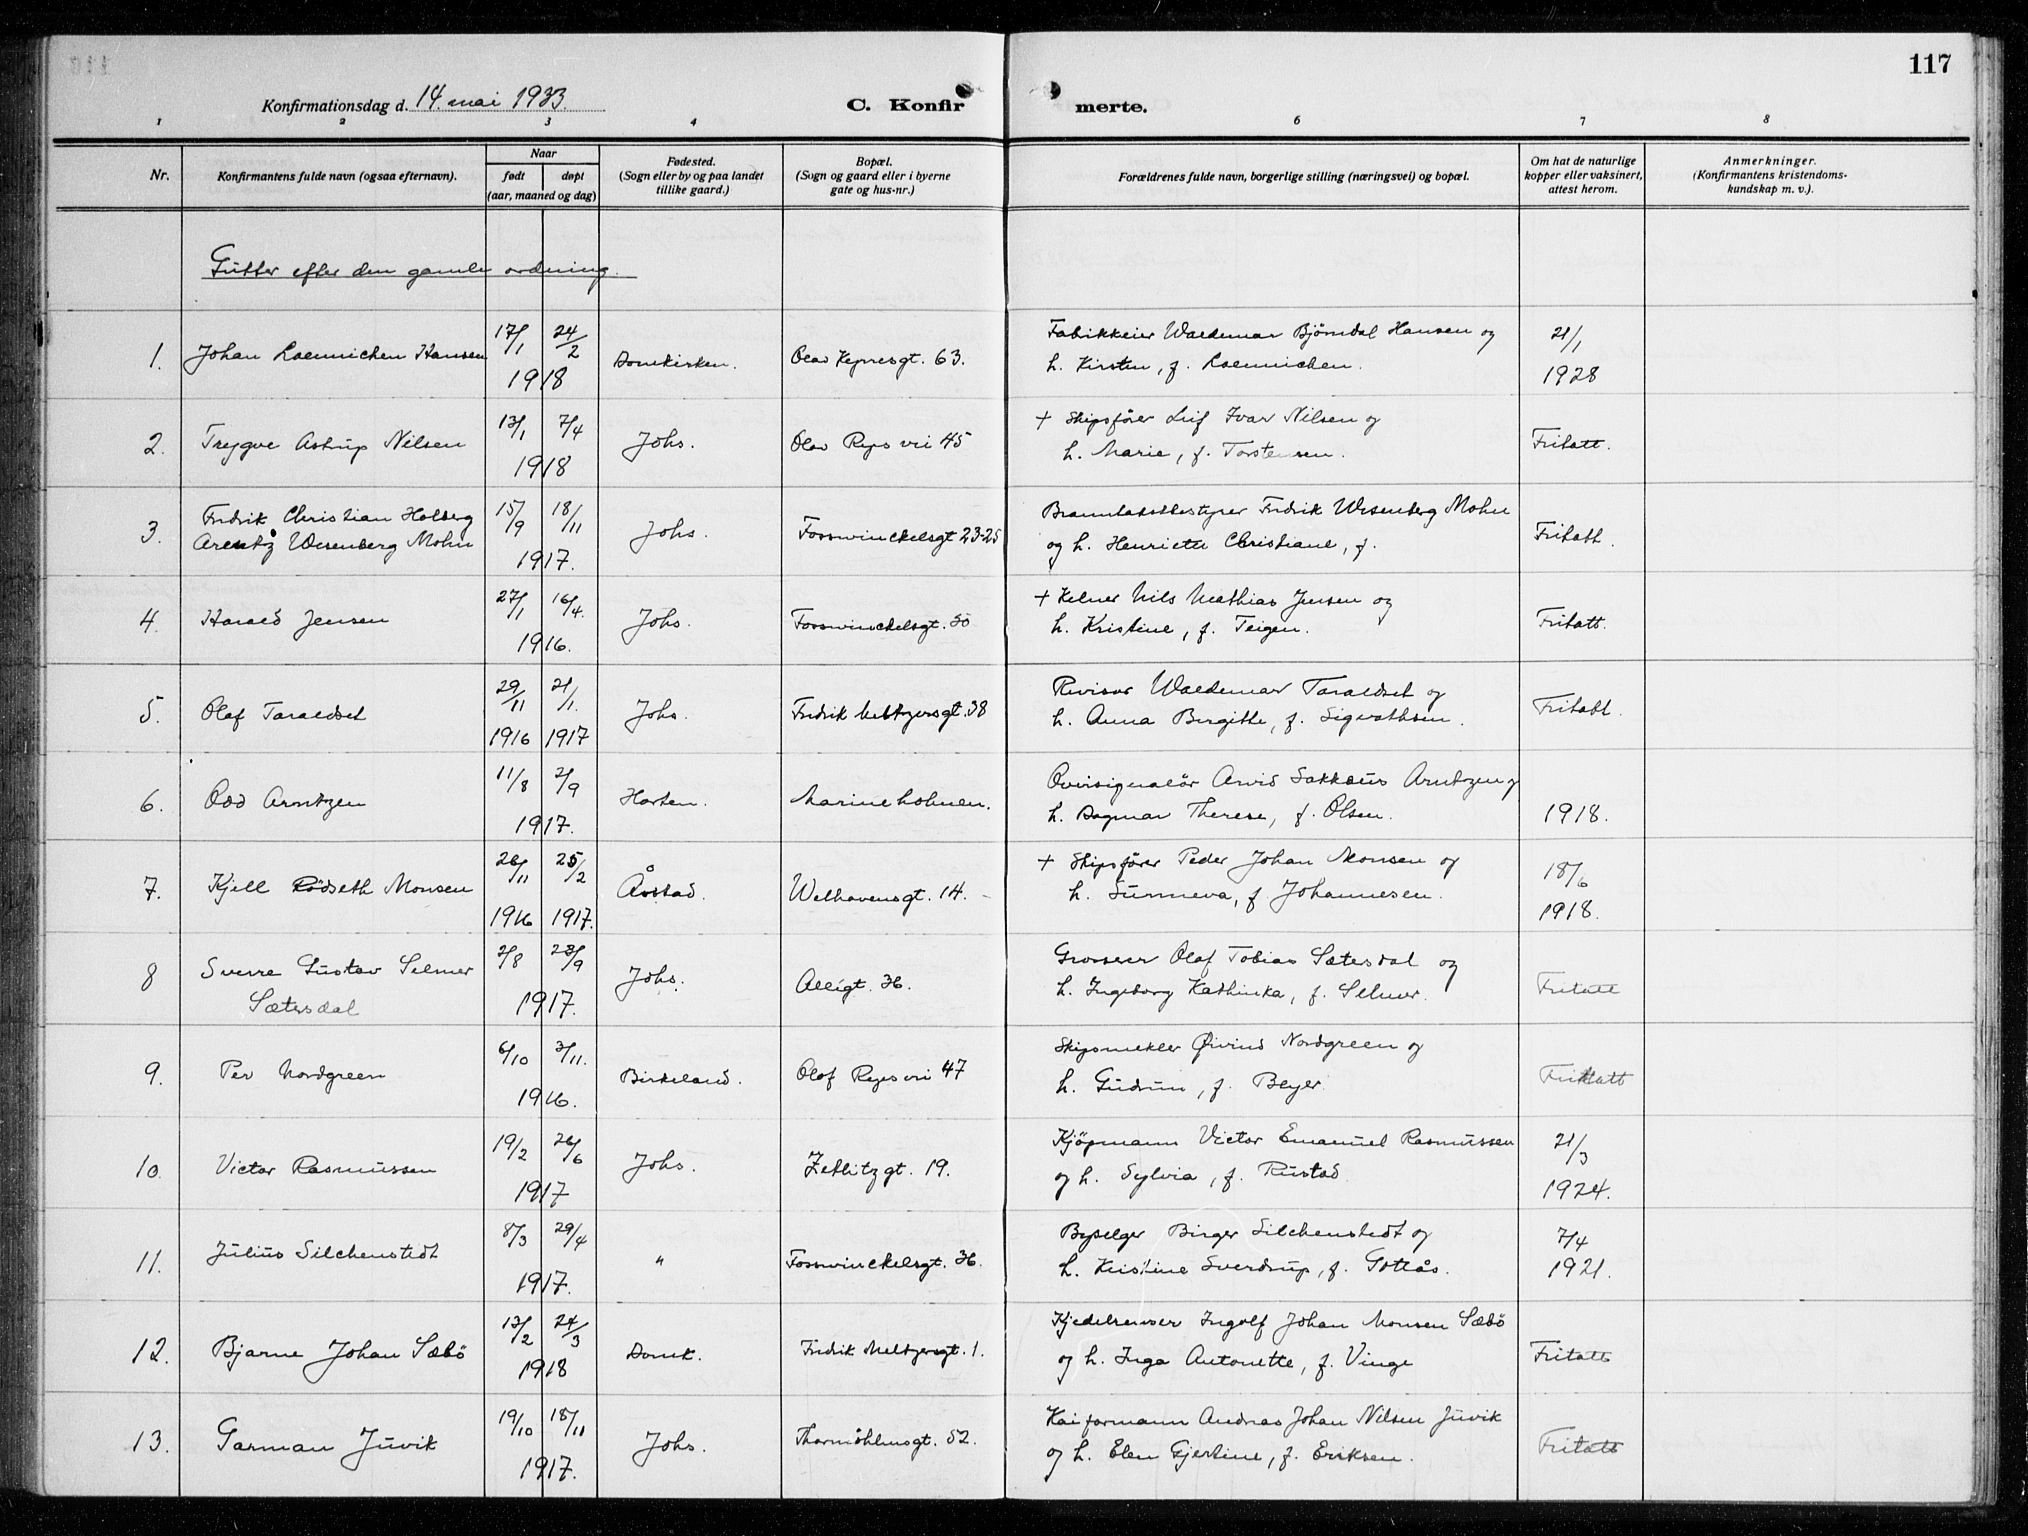 117
Konfirmationsdag d. 14. mai 1933.
C. Konfirmerte.
1 2 3 4 6 7 8
Nr.
Konfirmantens fulde navn (ogsaa efternavn).
Naar
født
døpt
(aar, maaned og dag)
Fødested.
(Sogn eller by og paa landet
tillike gaard.)
Bopæl.
(Sogn og gaard eller i byerne
gate og hus-nr.)
Forældrenes fulde navn, borgerlige stilling (næringsvei) og bopæl.
Om hat de naturlige
kopper eller vaksinert,
attest herom.
Anmerkninger.
(Konfirmantens kristendoms-
kundskap m. v.).
Gutter efter den gamle ordning.
1. Johan Loennichen Hansen 17/1 24/2 1918 Domkirken. Olav Kyrresgt. 63.
Fabrikkeier Waldemar Bjørndal Hansen og
h. Kirsten, f. Loennichen.
21/1 1928
2. Trygve Astrup Nilsen 13/1 7/4 1918 Johs. Olav Ryes vei 45
+ Skipsfører Leif Ivar Nilsen og
h. Marie, f. Torstensen.
Fritatt.
3. Fredrik Christian Holberg
Arentz Wesenberg Mohn 15/9 18/11 1917. Johs. Fosswinckelsgt 23-25
Fredrik Wesenberg Mohn
og h. Henriette Christiane, f.
Fritatt.
4. Harald Jensen 27/1 16/4. 1916. Johs. Fosswinckelsgt. 50
+ Kelner Nils Mathias Jensen og
h. Kristine, f. Teigen.
Fritatt.
5. Olaf Taraldset 29/11 1916 21/1. 1917 Johs. Fredrik Meltzersgt. 38
Revisor Waldemar Taraldset og
h. Anna Birgitte, f. Sigvathsen.
Fritatt.
6. Odd Arntzen 11/8 2/9 1917. Horten. Marineholmen.
Oversignalør Arvid Sakkæus Arntzen og
h. Dagmar Therese, f. Olsen.
1918.
7. Kjell Rødseth Monsen 26/11 1916 25/2 1917. Årstad. Welhavensgt. 14.
+ Skipsfører Peder Johan Monsen og
h. Sunneva, f. Johannesen.
18/6 1918.
8 Sverre Gustav Selmer
Sætersdal 2/8 23/9 1917. Johs. Allégt. 36.
Grosserer Olaf Tobias Sætersdal og
h. Ingeborg Kathinka, f. Selmer.
Fritatt
9. Per Nordgreen 6/10 3/11. 1916. Birkeland. Olaf Ryes vei 47
Skipsmekler Øivind Nordgreen og
h. Gudrun, f. Beyer.
Fritatt
10. Victor Rasmussen 19/2 26/6 1917 Johs. Zetlitzgt. 19.
Kjøpmann Victor Emanuel Rasmussen
og h. Sylvia, f. Rustad.
21/3 1924.
11. Julius Silchenstedt 8/3 29/4 1917. " Fosswinckelsgt. 36.
Byselger Birger Silchenstedt og
h. Kristine Sverdrup, f. Gotaas.
7/4 1921.
12. Bjarne Johan Sæbö 13/2 24/3 1918 Domk. Fredrik Meltzersgt. 1.
Kjedelrenser Ingolf Johan Monsen Sæbö
og h. Inga Antonette, f. Vinge
Fritatt
13. Garman Juvik 19/10 18/11 1917. Johs. Thormøhlensgt. 52.
Kaiformann Andreas Johan Nilsen Juvik
og h. Elen Gjertine, f. Eriksen.
Fritatt